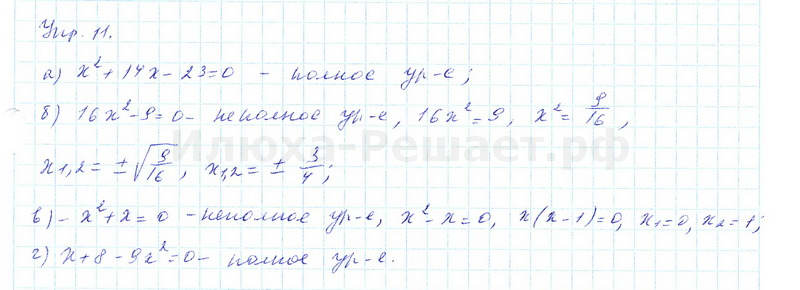 Упр. 11.
а) x² + 14x - 23 = 0 - полное ур-е;
б) 16x² - 9 = 0 - неполное ур-е, 16x² = 9, x² = 9/16,
Илюха-Решает.рф
x1,2 = ± √9/16, x1,2 = ± 3/4;
в) - x² + x = 0 - неполное ур-е, x² - x = 0, x(x - 1) = 0, x1 = 0, x2 = 1;
г) x + 8 - 9x² = 0 - полное ур-е.